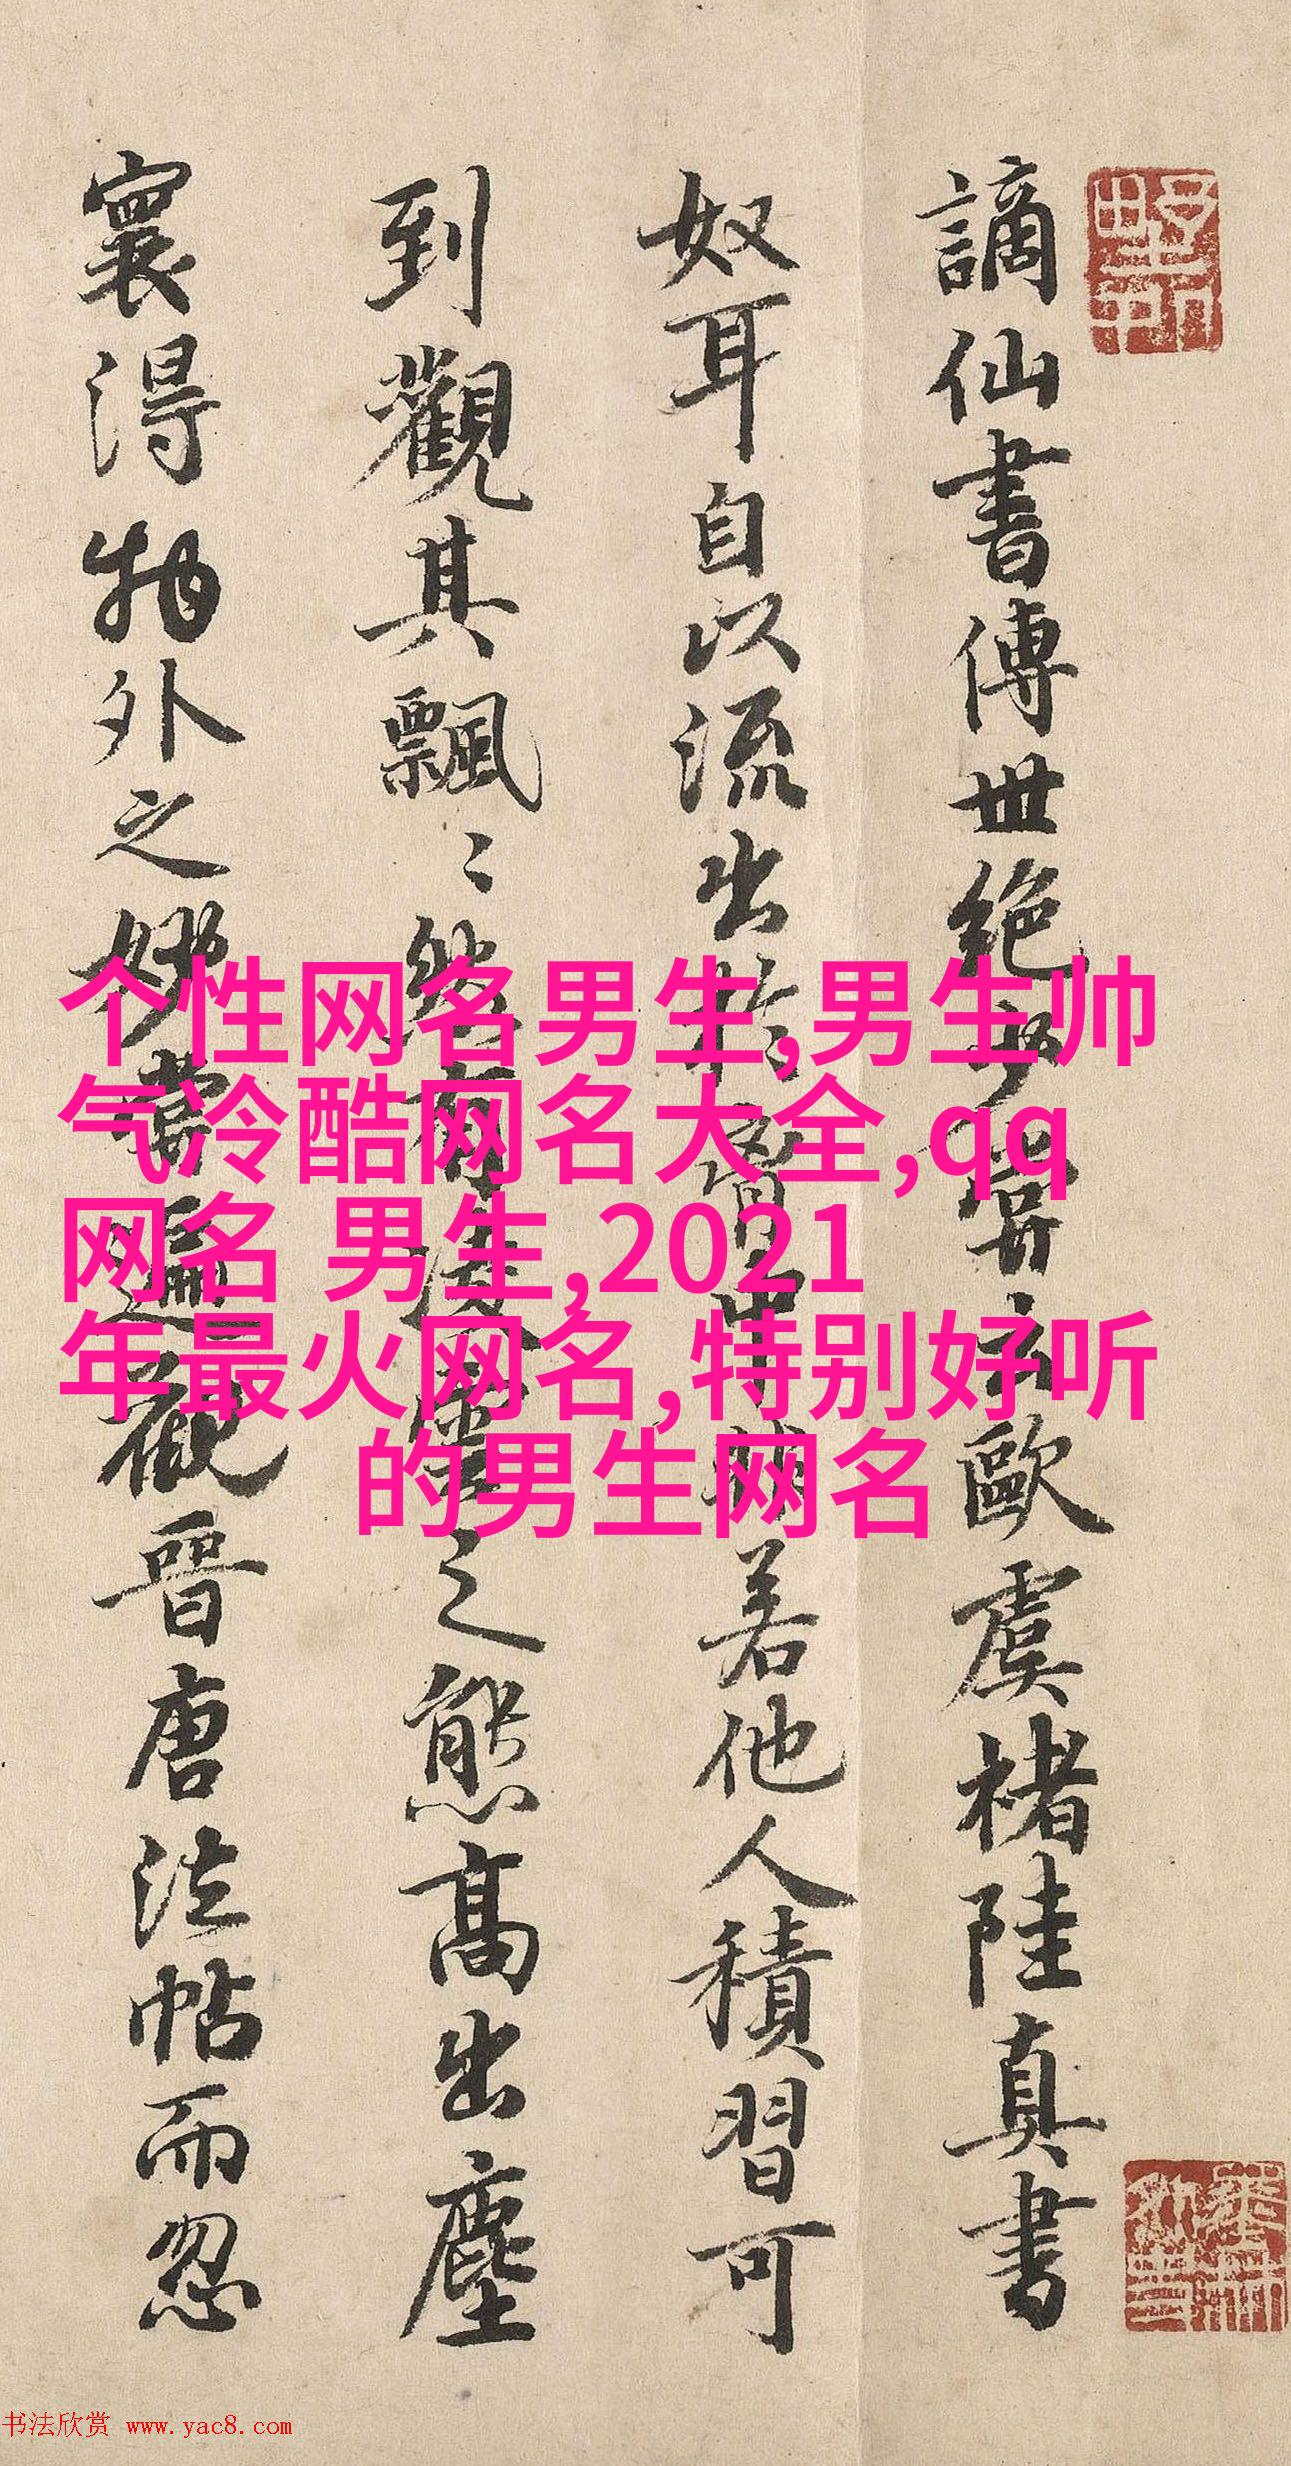 謫仙書傳世絕少甞云歐虞褚陸真書
奴耳自以流出於胷中非若他人積習可
到觀其飄々然有凌雲之態高出塵
寰得物外之妙甞遍觀晉唐法帖而忽
个性网名男生,男生帅
气冷酷网名大全,qq
网名 男生,2021
年最火网名,特别好听
的男生网名
书法欣赏 www.yac8.com